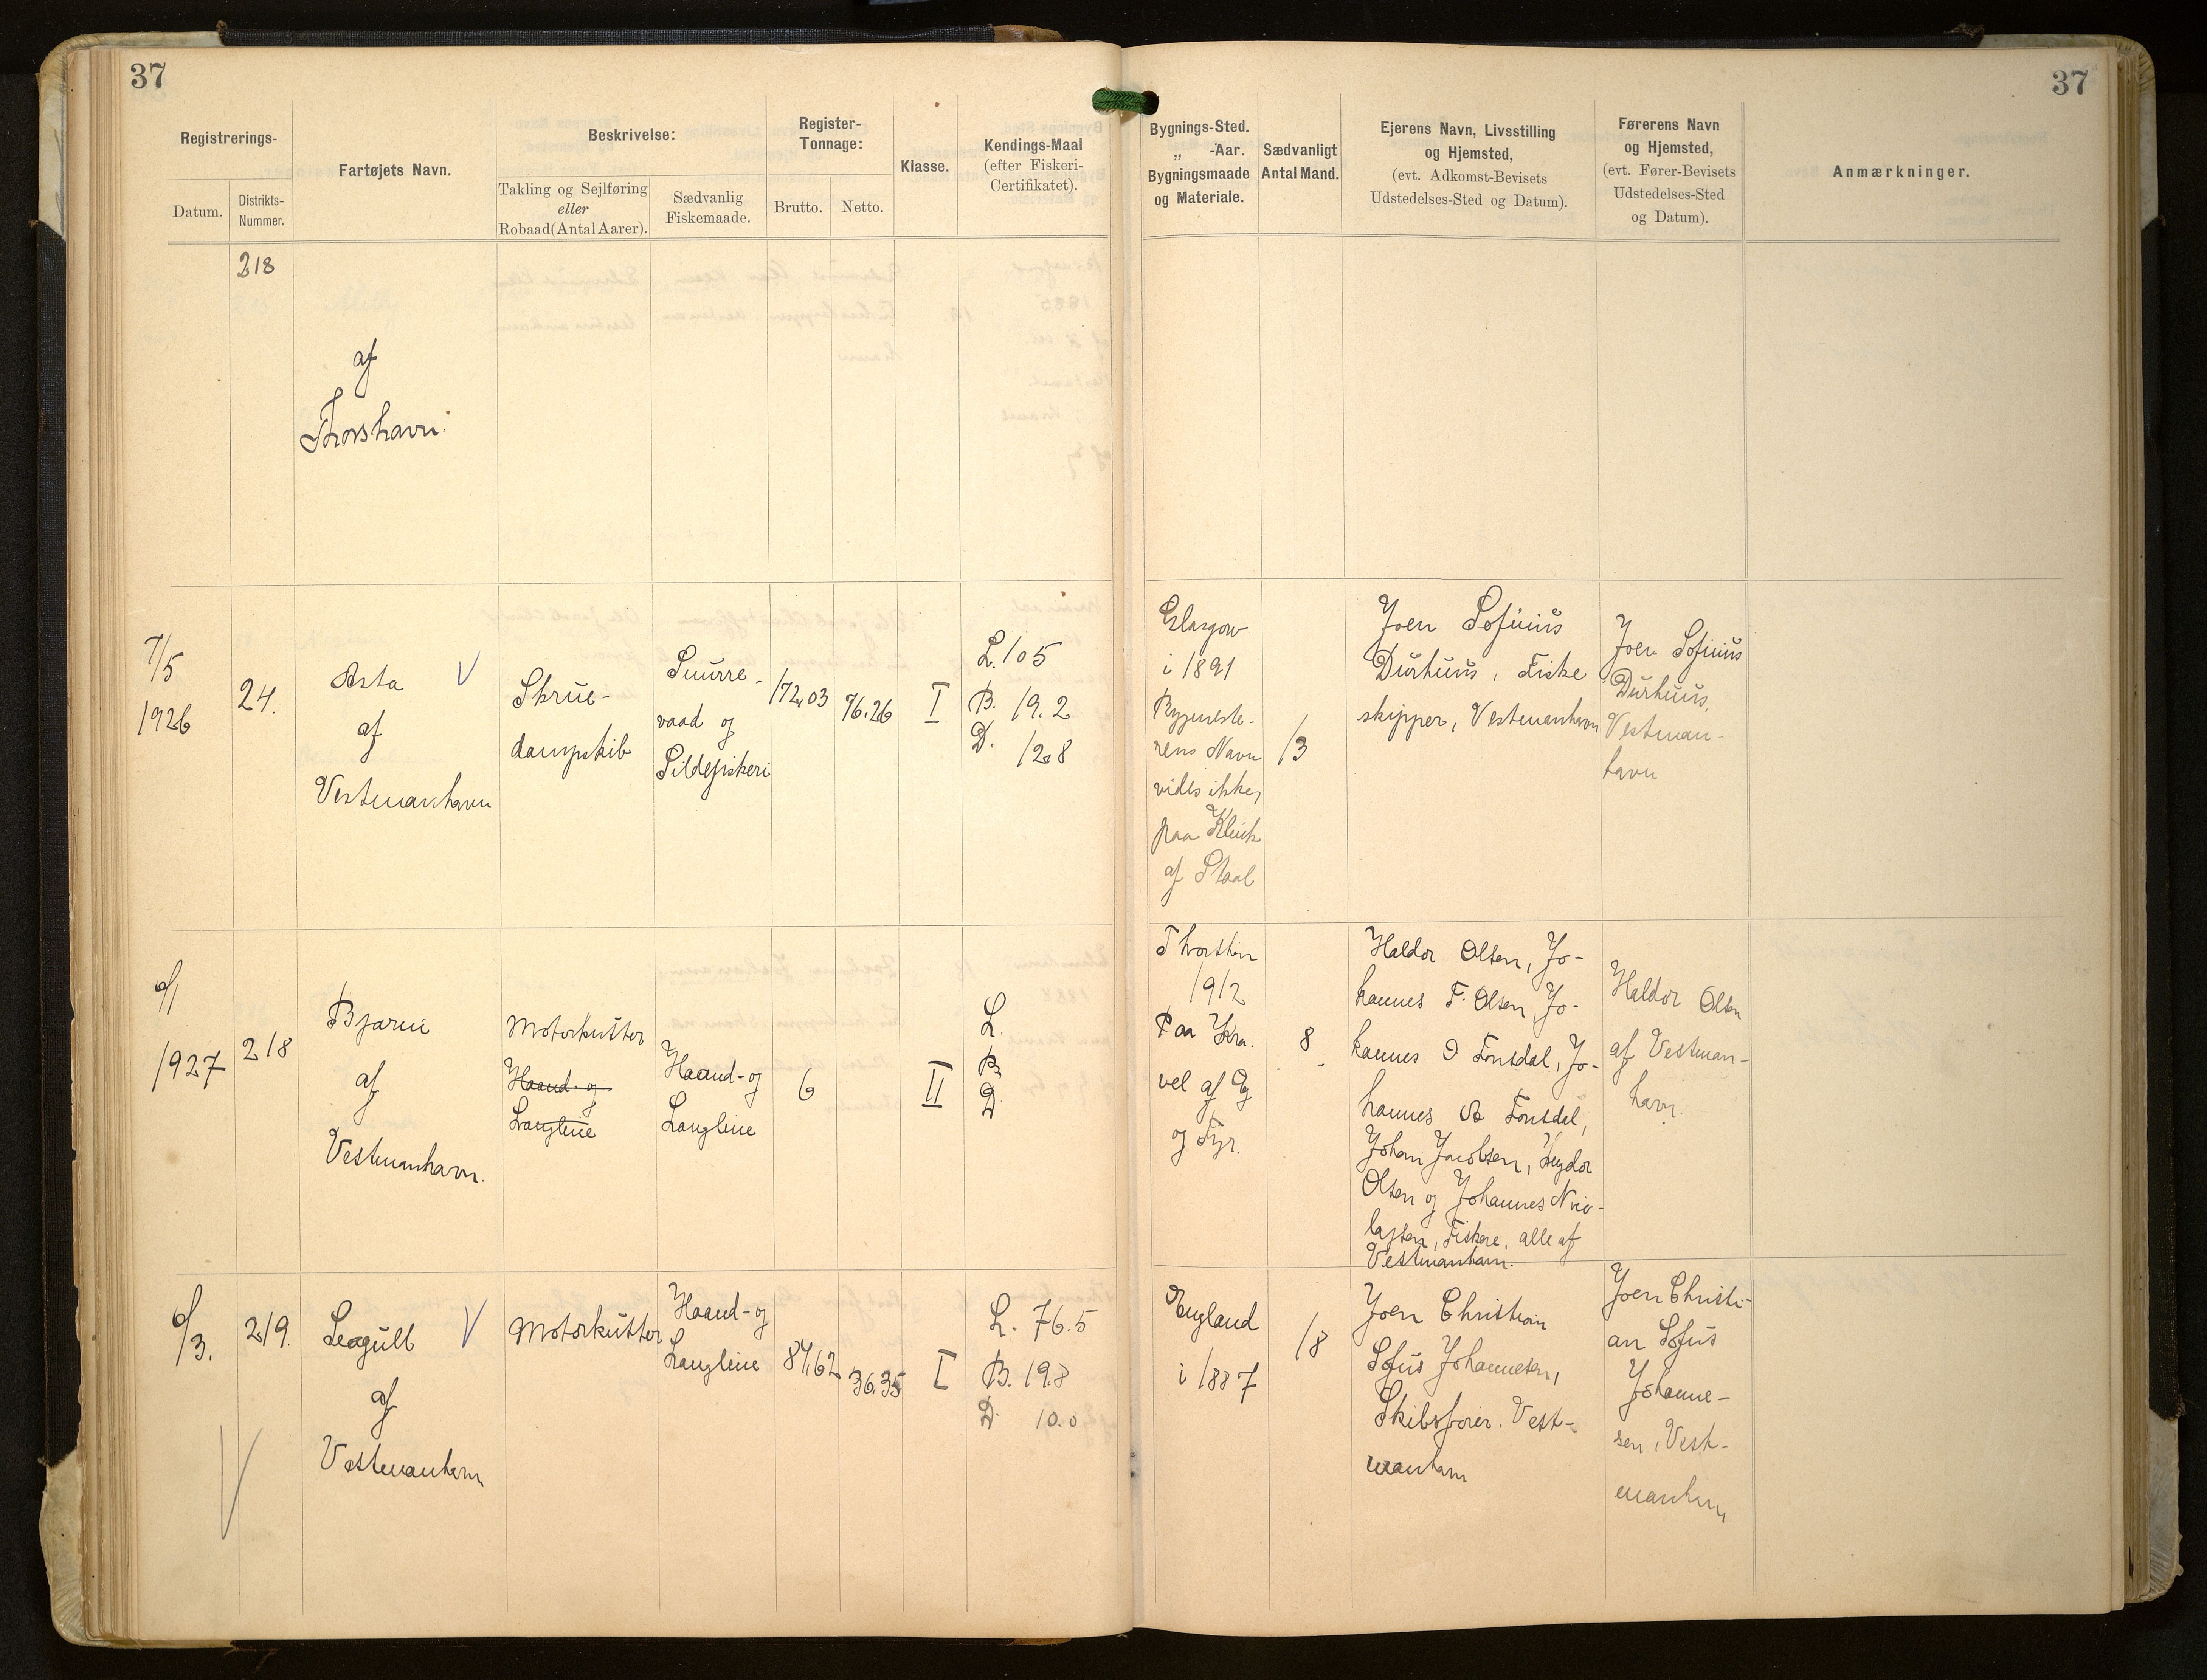 37
37
Registrerings-
Datum.
Distrikts-
Nummer.
Fartøjets Navn.
Beskrivelse:
Takling og Sejlføring
eller
Robaad (Antal Aarer).
Sædvanlig
Fiskemaade.
Register-
Tonnage:
Brutto.
Netto.
Klasse.
Kendings-Maal
(efter Fiskeri-
Certifikatet).
Bygnings-Sted.
„ -Aar.
Bygningsmaade
og Materiale.
Sædvanligt
Antal Mand.
Ejerens Navn, Livsstilling
og Hjemsted,
(evt. Adkomst-Bevisets
Udstedelses-Sted og Datum).
Førerens Navn
og Hjemsted,
(evt. Fører-Bevisets
Udstedelses-Sted
og Datum).
Anmærkninger.
218
af
Thorshavn
7/5
1926
24.
Asta V
af
Vestmanhavn
Skrue-
dampskib
Snurre-
vaad og
Sildefiskeri
172,03
76.26
I
L. 105
B. 19.2
D.
12.8
Glasgow
i 1891
Bygmeste-
rens Navn
vides ikke,
paa Klink
af Staal
13
Joen Sofinus
Durhuus, Fiske
skipper, Vestmanhavn
Joen Sofinus
Durhuus,
Vestman-
havn
/1
1927
218
Bjarni
af
Vestmanhavn.
Motorkutter
Haand- og
Langline
Haand- og
Langline
6
II
L.
B.
D.
1912
Paa Kra.
vel af Eg
og Fyr.
8
Haldor Olsen, Jo-
hannes F. Olsen, Jo-
hannes D Fonsdal, Jo-
hannes Fonsdal,
Johan Jacobsen,
Olsen og Johannes Nico-
lajsen, Fiskere, alle af
Vestmanhavn.
Haldor Olsen
af Vestman-
havn.
/3.
219.
Seagull V
af
Vestmanhavn
Motorkutter
Haand- og
Langline
87,62
36.35
I
L. 76.5
B. 19.8
D. 10.0
England
i 1887
18
Joen Christian
Sofus Johannesen,
Skibsfører. Vest-
manhavn
Joen Christi-
an Sofus
Johanne-
sen, Vest-
manhavn
V